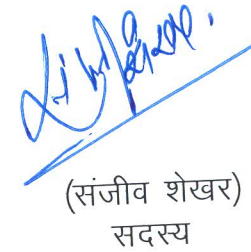 (संजीव शेखर)
सदस्य